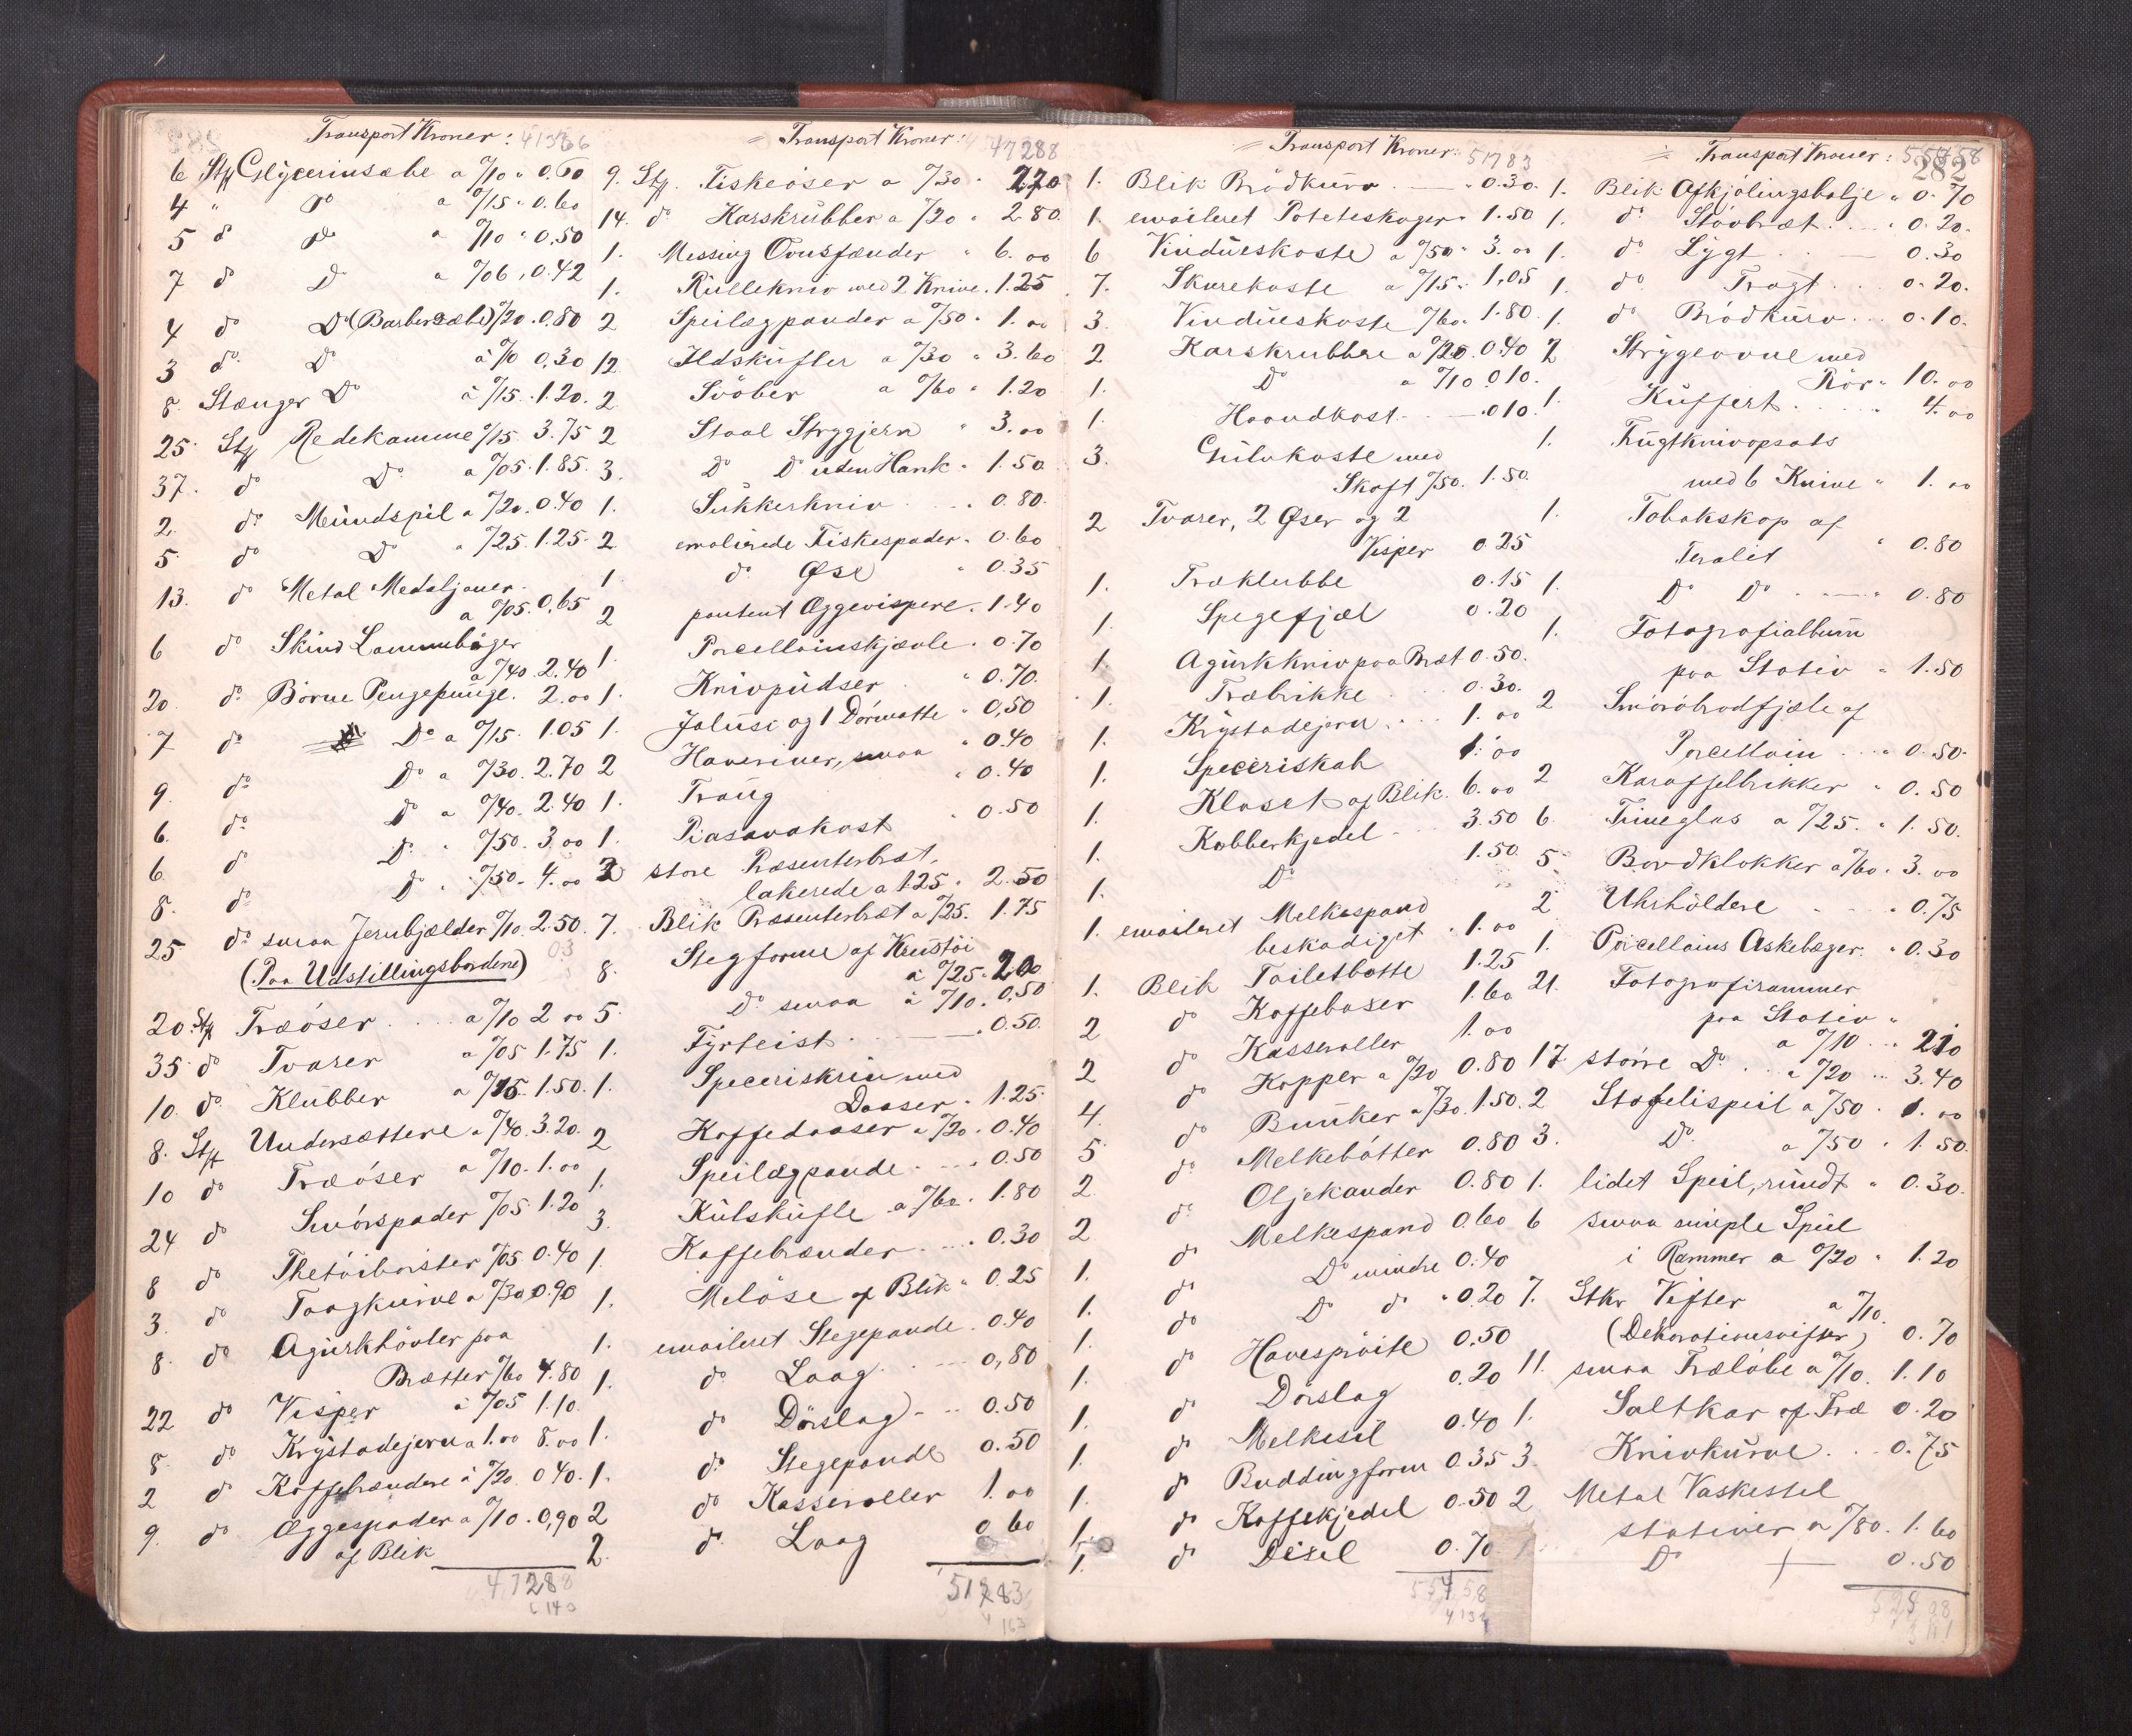 Transport Kroner: 41366
6 Stk Glycerinsæbe a %10 " 0.60
4 " Do a %15 " 0.60
5 do Do a %10 " 0,50
7 do Do a %06 " 0.42
4 do Do (Barbersæbe) %20 . 0.80
3 do Do a %10 0,30
8. Stænger Do a %15 . 1.20.
25. Stk Redekamme %15. 3.75
37. do Do a %05. 1.85.
2. do Mundspil a %20. 0.40
5. do Do a %25. 1.25.
13. do Metal Medaljoner.
a %05. 0,65
6 do Skind Lommebøger
a %40. 2.40
20. do Börne Pengepunge. 2.00
7 do Do a %15. 1.05
9. do Do a %30. 2.70
6. do Do a %40. 2.40
6. do Do " %50. 3.00
8. do Do " %50. 4.00
25 do smaa Jernbjælder %10. 2.50
(Paa Udstillingsbordene)
20. Stk Træöser . . . a %10 2 00
35 do Tvarer a %05 1.75
10. do Klubber a %15 1.50
8. Stk Undersættere a %40. 3.20.
10 do Træöser a %10. 1.00
24 do Smörspader %05. 1.20
8 do Thetöibrister %05 0.40
3. do Taagkurve a %30 0.90
8. do Agurkhövler paa
Brætter %60 4.80
22 do Visper a %05 1.10.
8. do Krystadejern a 1.00 8.00
2 do Kaffebrændere a %20. 0 40.
9. do Æggespader a %10. 0,90
af Blik
47288
Transport Kroner: 47288
9. Stk. Fiskeöser a %30 " 2.70
14. do Karskrubber a %20 " 2.80.
1. Messing Ovnsfænder " 6.00
1. Rullekniv med 2 Knive. 1.25
2 Speilægpander a %50 " 1.00
12. Ildskufler a %30 " 3.60
2. Svöber a %60 " 1.20
2 Staal Strygjern " 3.00
3. Do Do uden Hank " 1.50.
1. Sukkerkniv . . . 0.80.
2. emalierede Fiskespader " 0.60
1 do Øse " 0.35
2 pantent Æggevispere. 1.40
1. Porcellainskjævle. 0.70
1. Knivpudser " 0.70.
1. Jalusi og 1 Dörmatte " 0,50
2 Haveriver, smaa " 0.40
1. Traug " 0.40
1. Piasavakost " 0.50
2 store Præsenterbræt.
lakerede a 1.25 " 2.50
7. Blik Præsenterbræt a %25. 1.75
8. Stegforme af Krustöi
a %25 " 2.00
5. Do smaa a %10. 0,50
1. Fyrteist . . . 0.50.
1. Speceriskrin med
Daaser. 1.25.
2 Kaffedaaser a %20 . 0.40
1. Speilægpande. . . . 0.50
3. Kulskufle a %60. 1.80
1. Kaffebrænder. . . . 0.30
1. Melöse af Blik " 0.25
1. emaileret Stegepande. 0.40
1. do Laag . . . 0,80
1. do Dörslag - .. 0.50
1. do Stegepande 0.50
2 do Kasseroller 1.00
2. do Laag 0 60
51783
Transport Kroner: 51783
1. Blik Brödkurv . — " 0.30.
1. emaileret Poteteskoger " 1.50
6 Vindueskoste a %50 " 3.00
7. Skurekoste a %15 " 1,05
3. Vindueskoste %60 " 1.80
2. Karskrubbere a %20. 0.40
1. Do a %10 . 0 10.
1. Haandkost . — . 0 10.
3. Gulvkoste med
Skaft %50. 1.50.
2 Tvarer, 2 Øser og 2
Visper 0.25
1. Træklubbe 0.15
1. Spegefjæl 0.20
1. Agurkkniv paa Bræt 0.50.
1. Træbrikke . . 0.30.
1. Krystadejern . . . 1.00
1. Speceriskab 1.00
1. Kloset af Blik. 6.00
1. Kobberkjedel - 3.50
1. Do 1.50.
1. emaileret Melkespand
beskadiget . 1.00
1. Blik Toiletbøtte 1.25
2 do Kaffebaser 1.60
2 do Kasseroller 1.00
4. do Kopper a %20 0.80
5 do Bunker a %30. 1.50.
2 do Melkebötter 0.80
2 do Oljekander 0.80
1. do Melkespand 0.60
1. do Do mindre 0.40
1. do Do do " 0.20
1. do Havespröite 0.50
1. do Dörslag 0.20
1. do Melkesil 0.40
1. do Buddingform 0.35
1. do Kaffekjedel 0.50
1. do Disel 0.70
55458
Transport Kroner: 55458
282
1. Blik Afkjölingsbalje " 0.70
1. do Stövbræt. . . . 0.20.
1. do Lygt . . — 0.30
1. do Tragt . . . 0.20.
1. do Brödkurv . . . 0.10.
2 Strygeovne med
Rör " 10.00
1. Kuffert . . . . 4.00
1. Frugtknivopsats
med 6 Knive " 1.00
1. Tobakskop af
Teralit " 0.80
1. Do Do . — " 0.80
1. Fotografialbum
paa Stativ " 1.50
2 Smörobrodfjæle af
Porcellain . . . 0.50.
2 Karaffelbrikker " 0.50
6. Fineglas a %25. " 1.50.
5 Bordklokker a %60. 3.00
2 Uhrholdere . . " 0.75
1. Porcellains Askebæger. " 0.30
21. Fotografirammer
paa Stativ "
a %10 . . . 210
17 större Do . . a %20 .. 3.40
2 Stafelispeil a %50 . 1.00
3. Do a %50 . 1.50.
1. lidet Speil, rundt " 0.30.
6 smaa simple Speil
i Rammer a %20 " 1.20
7. Stkr Vifter a %10.
(Dekorationsvifter) 0.70
11. smaa Træløbe a %10. 1.10
1. Saltkar af Træ 0.20
3. Knivkurve. . . 0.75
2 Metal Vaskestel
stativer a %80. 1.60
Do 0.50